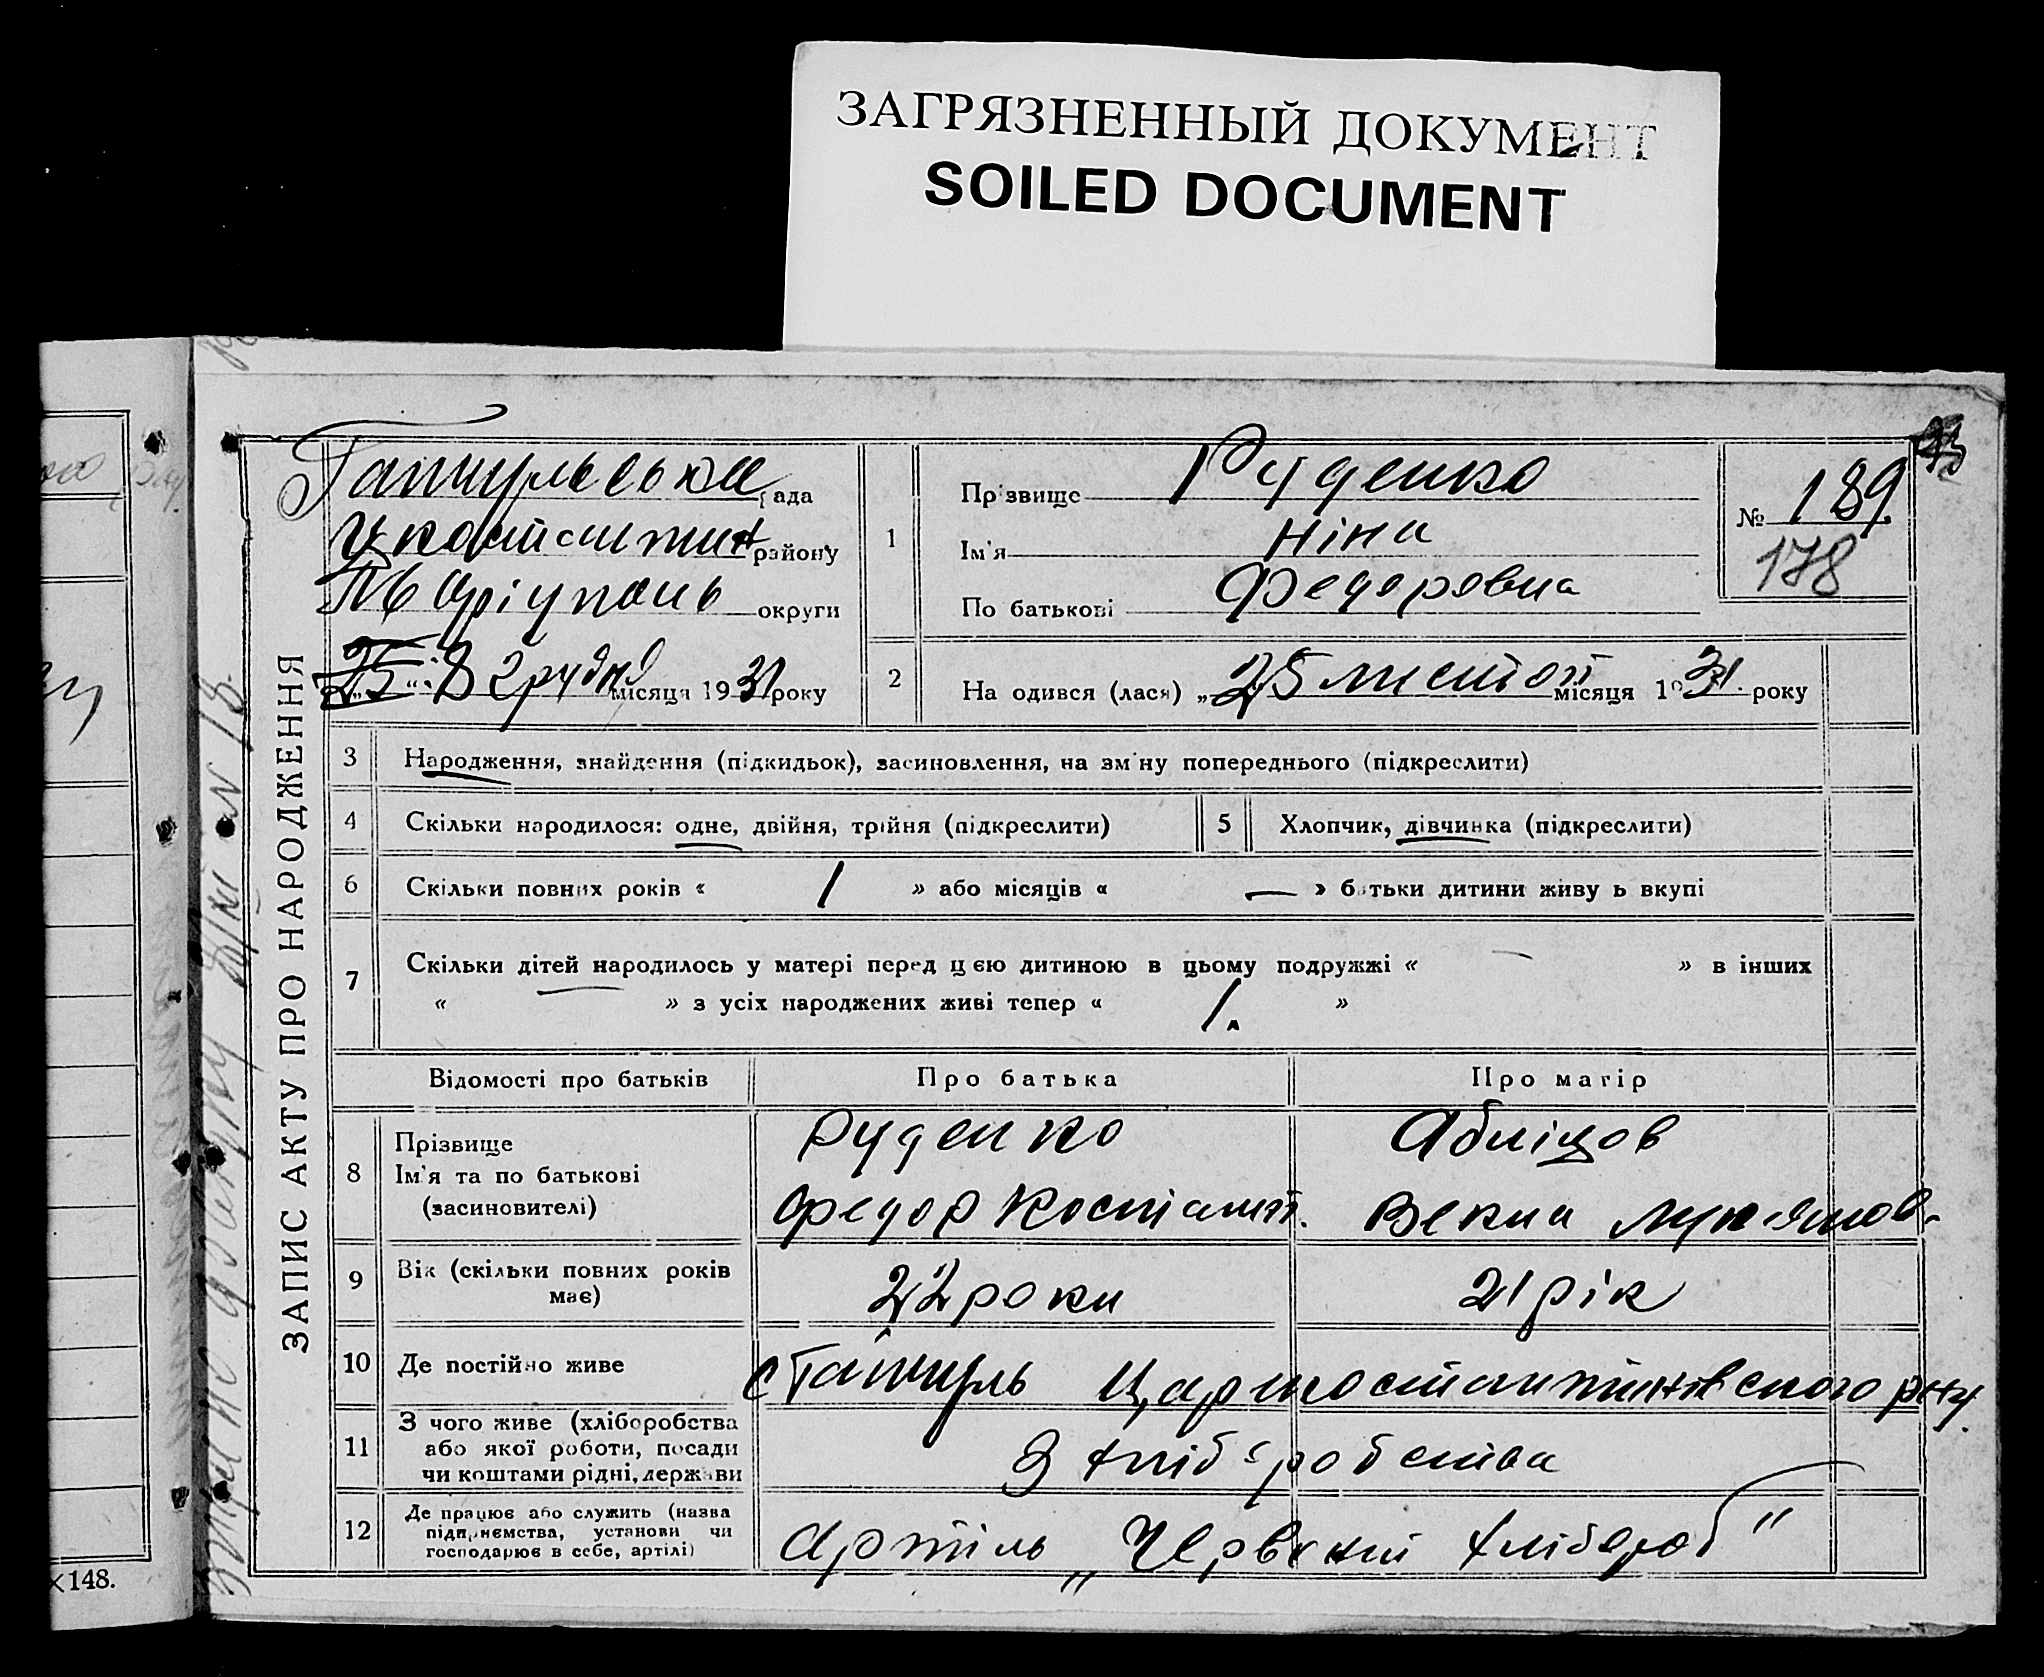 ЗАГРЯЗНЕННЫЙ ДОКУМЕНТ
SOILED DOCUMENT
ЗАПИС АКТУ ПРО НАРОДЖЕННЯ
рада
району
Маріуполь округи
25 8 грудня місяця 1931 року
1
Прізвище Руденко
Ім'я Ніна
По батькові Федоровна
№ 189
178
2
Народився (лася) „25 листоп місяця 1931 року
3 Народження, знайдення (підкидьок), засиновлення, на зміну попереднього (підкреслити)
4 Скільки народилося: одне, двійня, трійня (підкреслити)
5 Хлопчик, дівчинка (підкреслити)
6 Скільки повних років « 1 » або місяців « — » батьки дитини живуть вкупі
7 Скільки дітей народилось у матері перед цією дитиною в цьому подружжі « — » в інших
« — » з усіх народжених живі тепер « 1. »
Відомості про батьків Про батька Про матір
8 Прізвище
Ім'я та по батькові
(засиновителі)
Руденко
Федор Костянт.
Абліцов
Векла Лук'янов.
9 Вік (скільки повних років
має)
22 роки
21 рік
10 Де постійно живе
11 З чого живе (хліборобства
або якої роботи, посади
чи коштами рідні, держави
З хліборобства
12 Де працює або служить (назва
підприємства, установи чи
господарює в себе, артілі)
Артіль „Червоний хлібороб"
×148.